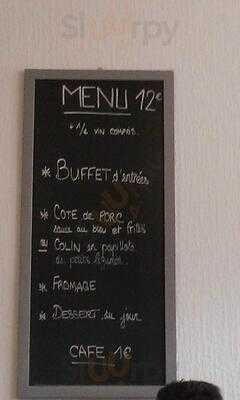 Slurrpy
MENU 12€
+ 1/4 VIN COMPRIS.
* BUFFET d'entrées
* COTE de PORC
sauce au bleu et frites
ou COLIN en papillote
de petits légumes.
* FROMAGE
* DESSERT du jour
CAFE 1€